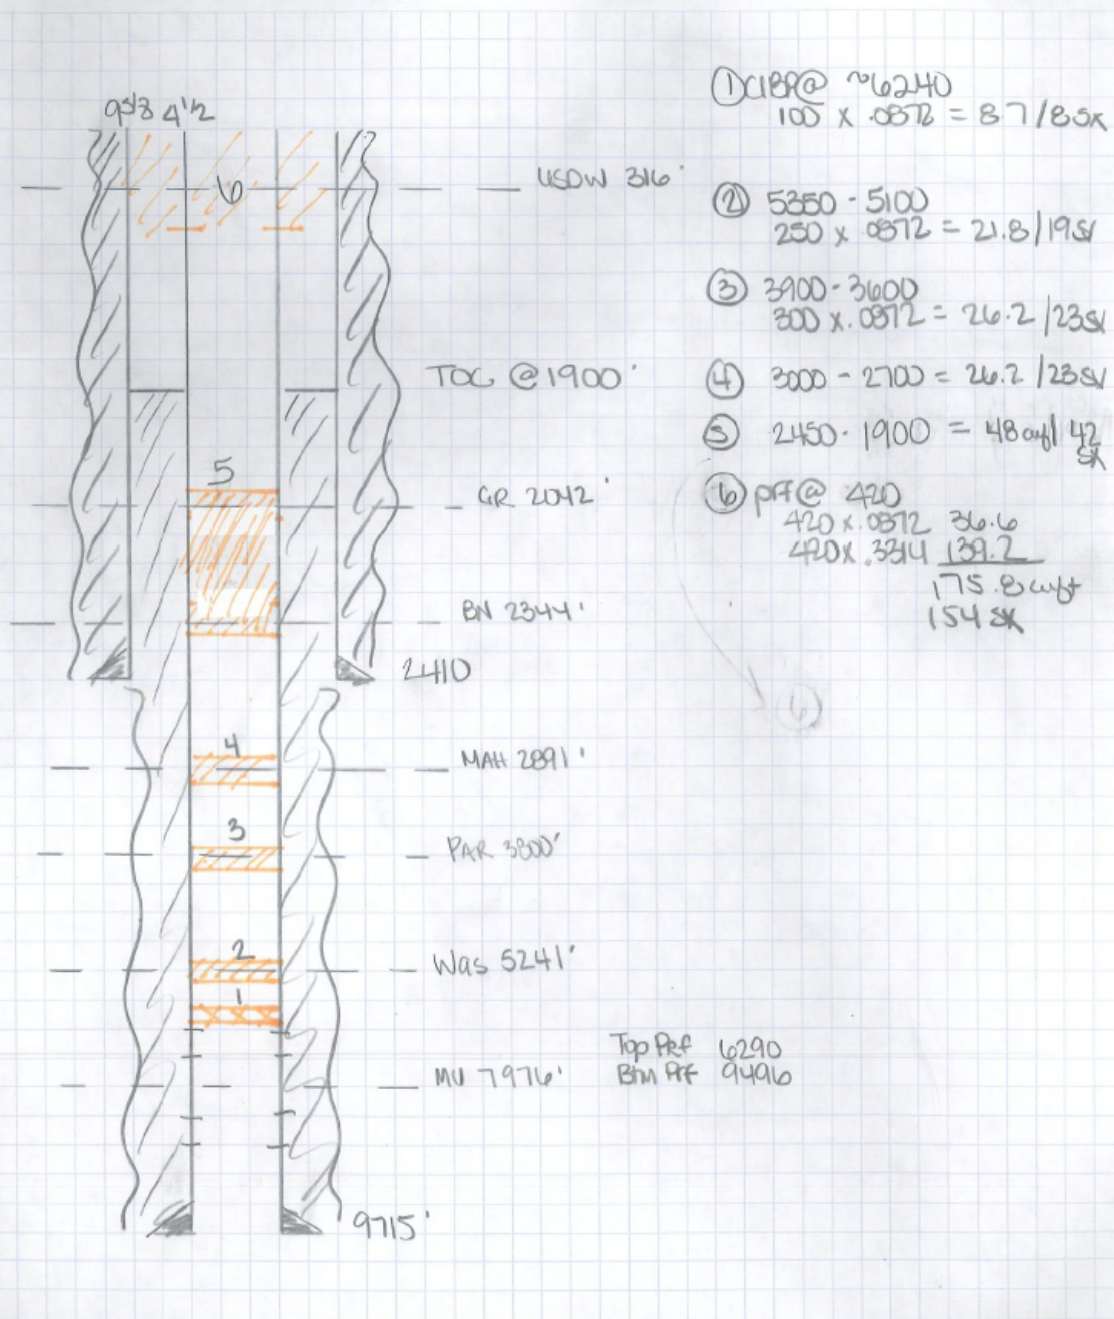 9 5/8 4 1/2
6
USDW 316'
TOC @ 1900'
5
GR 2042'
BN 2344'
2410
4
MAH 2891'
3
PAR 3800'
2
Was 5241'
1
MV 7976'
Top Prf 6290
Btm Prf 9496
9715'
① CIBP@ ~6240
100 x .0872 = 8.7/8sx
② 5350 - 5100
250 x .0872 = 21.8/19sx
③ 3900 - 3600
300 x .0872 = 26.2/23sx
④ 3000 - 2700 = 26.2/23sx
⑤ 2450 - 1900 = 48 cuft/42
sx
⑥ prf@ 420
420 x .0872 36.6
420 x .3314 139.2
175.8 cuft
154 sx
⑥